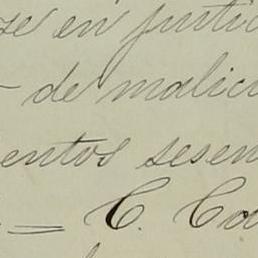 se en justic
- de malici
entos sesen
= C. Ca